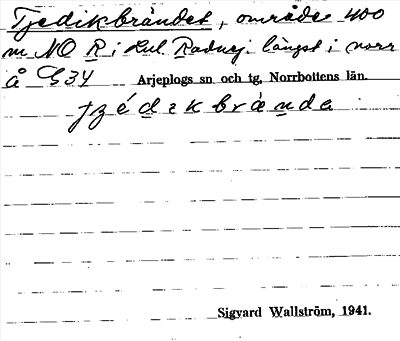 Tjedikbrändet, område 400
m NO R i Lul. Radnej längst i norr
å G34 Arjeplogs sn och tg, Norrbottens län.
Sigvard Wallström, 1941.